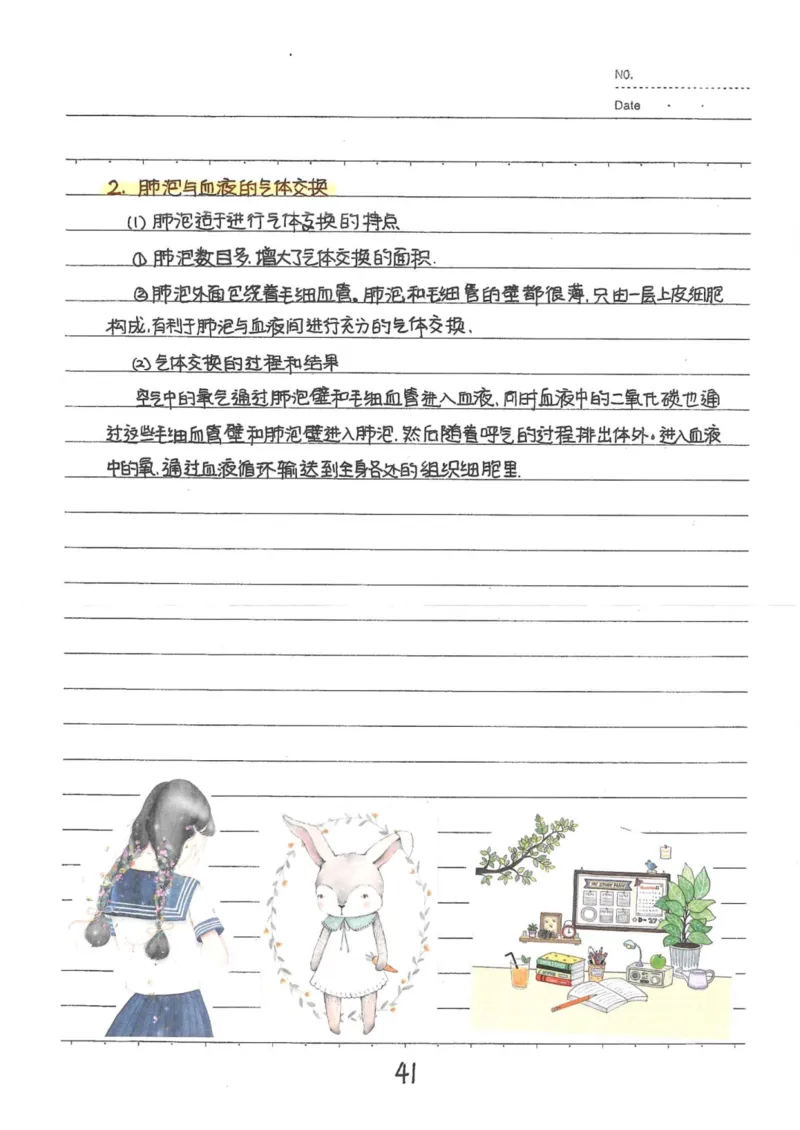 NO.
Date
2. 肺泡与血液的气体交换
(1) 肺泡适于进行气体交换的特点
① 肺泡数目多,增大了气体交换的面积.
②肺泡外面包绕着毛细血管。肺泡和毛细管的壁都很薄,只由一层上皮细胞
构成,有利于肺泡与血液间进行充分的气体交换.
(2)气体交换的过程和结果
空气中的氧气通过肺泡壁和毛细血管进入血液,同时血液中的二氧化碳也通
过这些毛细血管壁和肺泡壁进入肺泡,然后随着呼气的过程排出体外。进入血液
中的氧,通过血液循环输送到全身各处的组织细胞里.
41